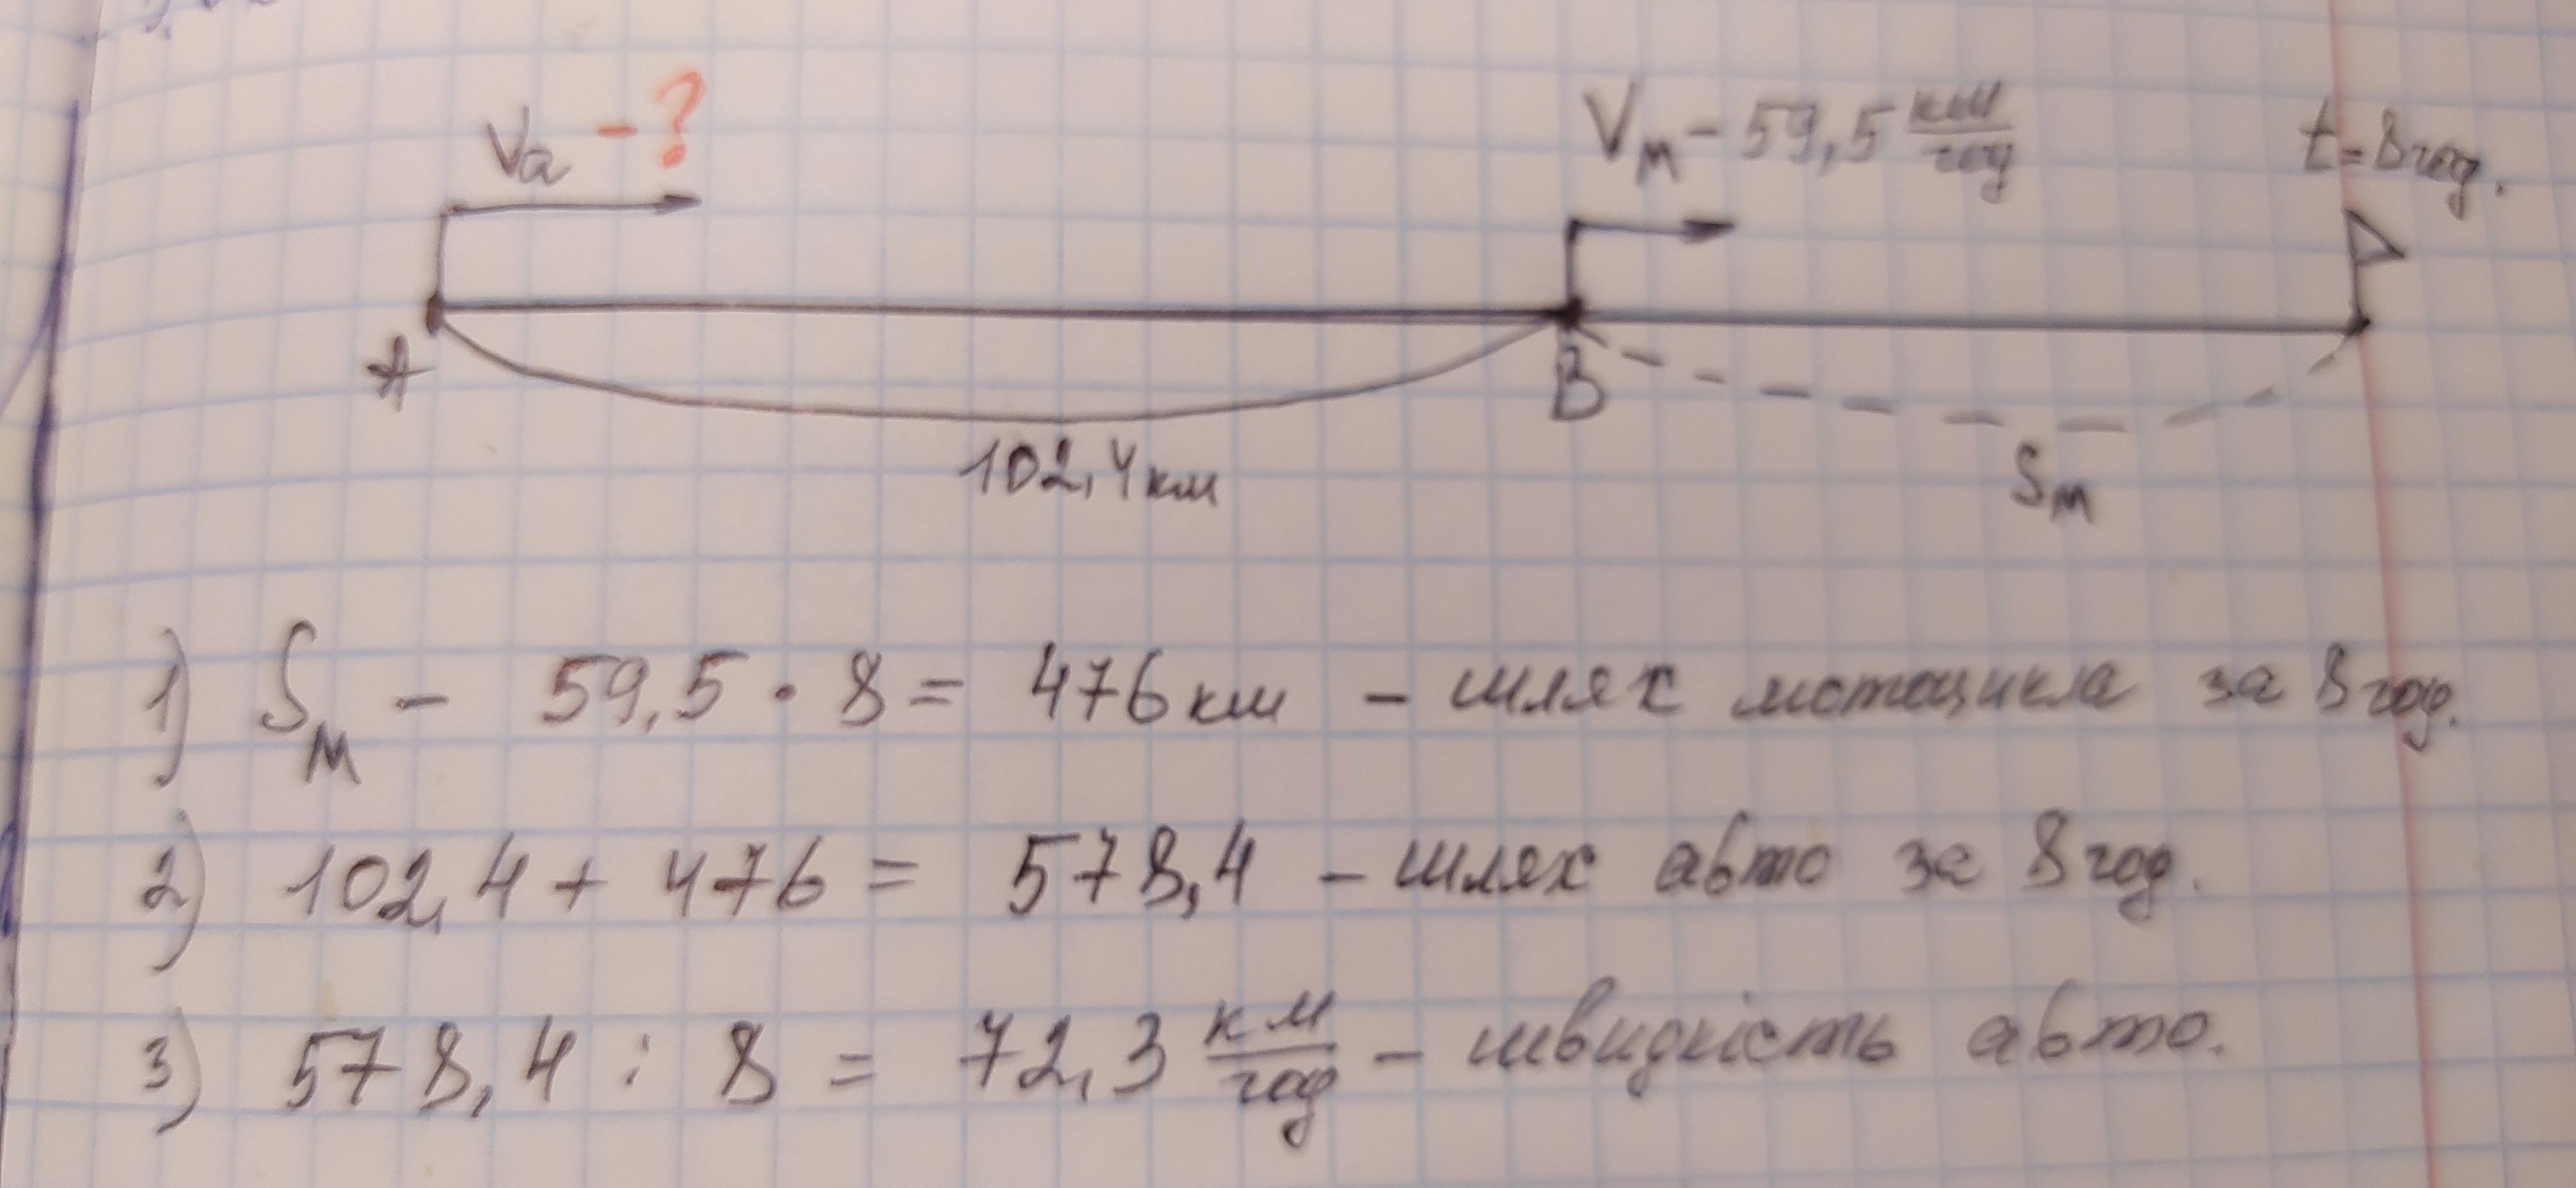 Vа - ?
Vм - 59,5 км/год
t = 8 год.
А
В
102,4 км
Sм
1) Sм - 59,5 · 8 = 476 км - шлях мотоцикла за 8 год.
2) 102,4 + 476 = 578,4 - шлях авто за 8 год.
3) 578,4 : 8 = 72,3 км/год - швидкість авто.